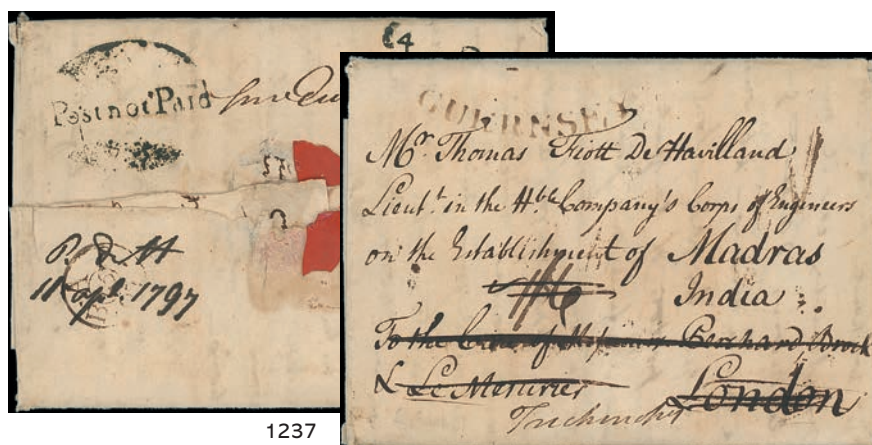 E4
Post not Paid
P. D. H
11 Apl. 1797
GUERNSEY
Mr. Thomas Fiott De Havilland
Lieut.t in the H.ble Company's Corps of Engineers
on the Establishment of Madras
India
To the Care of Perchard, Brock
& Le Mesurier London
1237